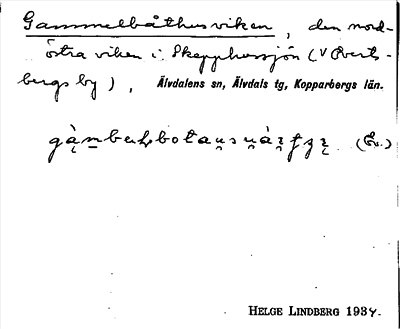 Gammelbåthusviken, den nord-
östra viken i Skepphussjön (V Åverts-
bergs by), Älvdalens sn, Älvdals tg, Kopparbergs län.
(Ev.)
HELGE LINDBERG 1934.